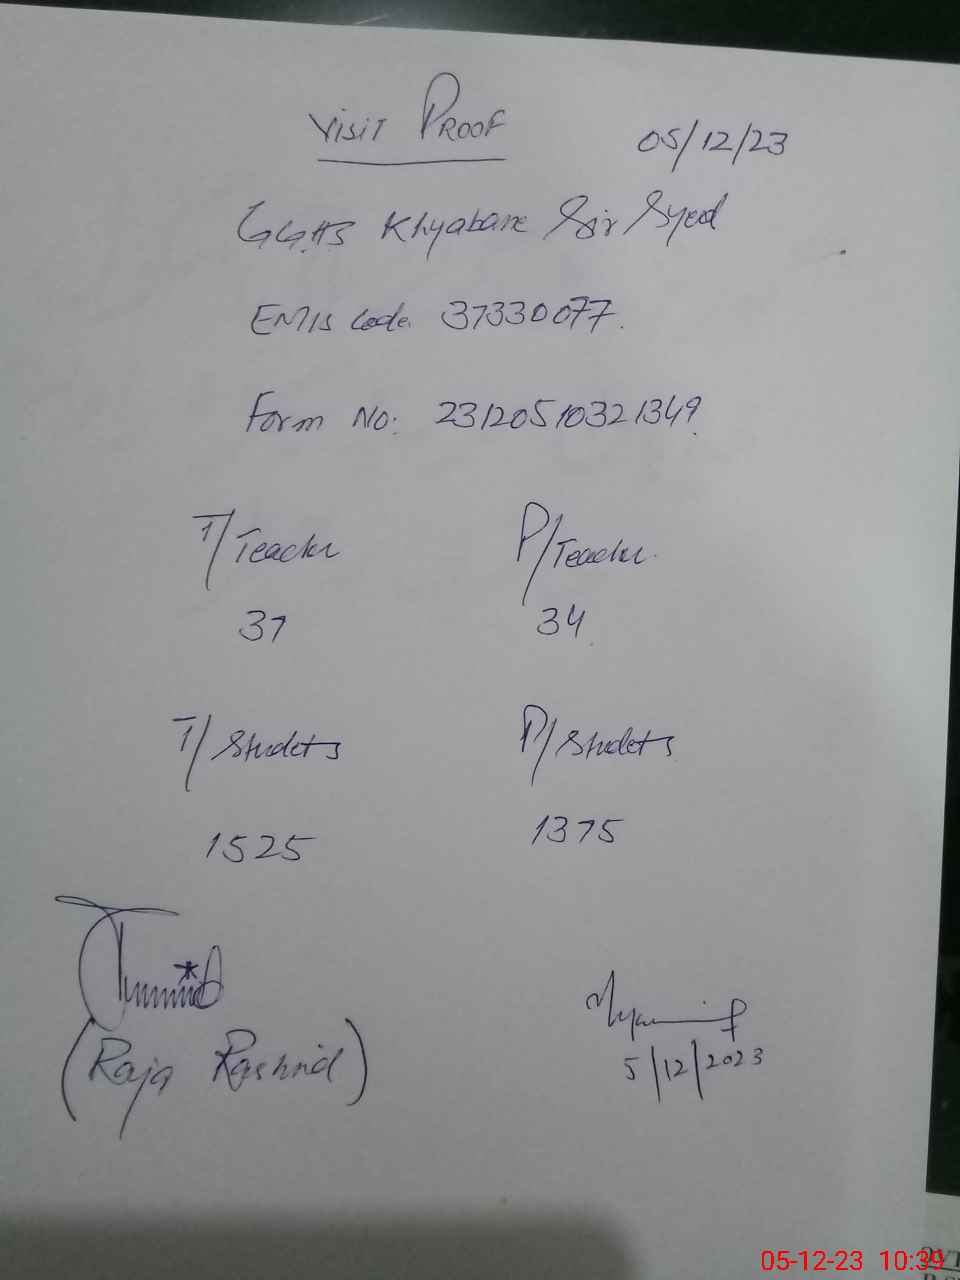 Visit Proof 05/12/23
GGHS Khyabane Sir Syed
EMIS Code. 37330077.
Form No: 23120510321349.
T/Teacher P/Teacher.
37 34
T/Studets P/Studets
1525 1375
(Raja Rashid)
5/12/2023
05-12-23 10:39